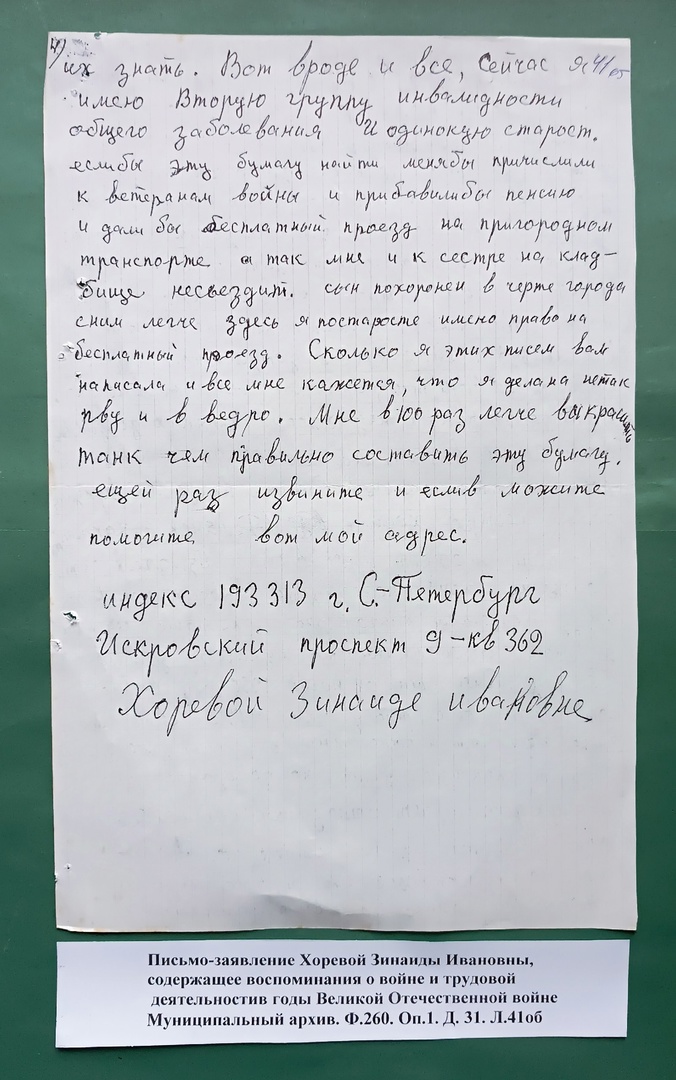 4)
их знать. Вот вроде и все, Сейчас я 41об
имею Вторую группу инвалидности
общего заболевания И одинокую старост.
еслибы эту бумагу найти менябы причислили
к ветеранам войны и прибавилибы пенсию
и дали бы бесплатный проезд на пригородном
транспорте а так мне и к сестре на клад-
бище несьездит. сын похоронен в черте города
сним легче здесь я постаросте имею право на
бесплатный проезд. Сколько я этих писем вам
написала и все мне кажется, что я делана нетак
рву и в ведро. Мне в 100 раз легче выкрасить
танк чем правильно составить эту бумагу.
ещей раз извините и еслив можите
помогите вот мой адрес.
индекс 193313 г. С.-Петербург
Искровский проспект 9-кв 362
Хоревой Зинаиде ивановне
Письмо-заявление Хоревой Зинаиды Ивановны,
содержащее воспоминания о войне и трудовой
деятельностив годы Великой Отечественной войне
Муниципальный архив. Ф.260. Оп.1. Д. 31. Л.41об